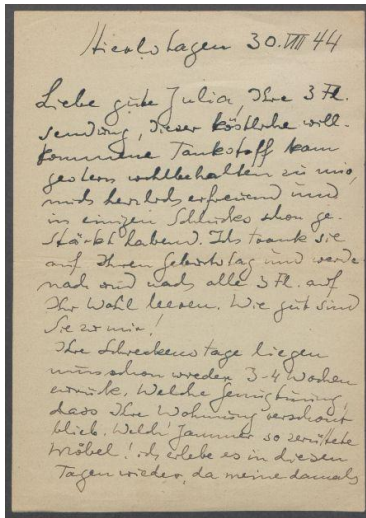 Hierlshagen 30. VIII 44
Liebe gute Julia, Ihre 3 Fl.
sendung, dieser köstliche will-
kommene Tankstoff kam
gestern wohlbehalten zu mir,
mich herzlich erfreuend und
in einigen Schlucks schon ge-
stärkt habend. Ich trank sie
auf Ihren Geburtstag und werde
nach und nach alle 3 Fl. auf
Ihr Wohl leeren. Wie gut sind
Sie zu mir!
Ihre Schreckenstage liegen
nun schon wieder 3-4 Wochen
zurück. Welche Genugtuung,
dass Ihre Wohnung verschont
blieb. Welch' Jammer so zerrüttete
Möbel! ich erlebe es in diesen
Tagen wieder, da meine damals